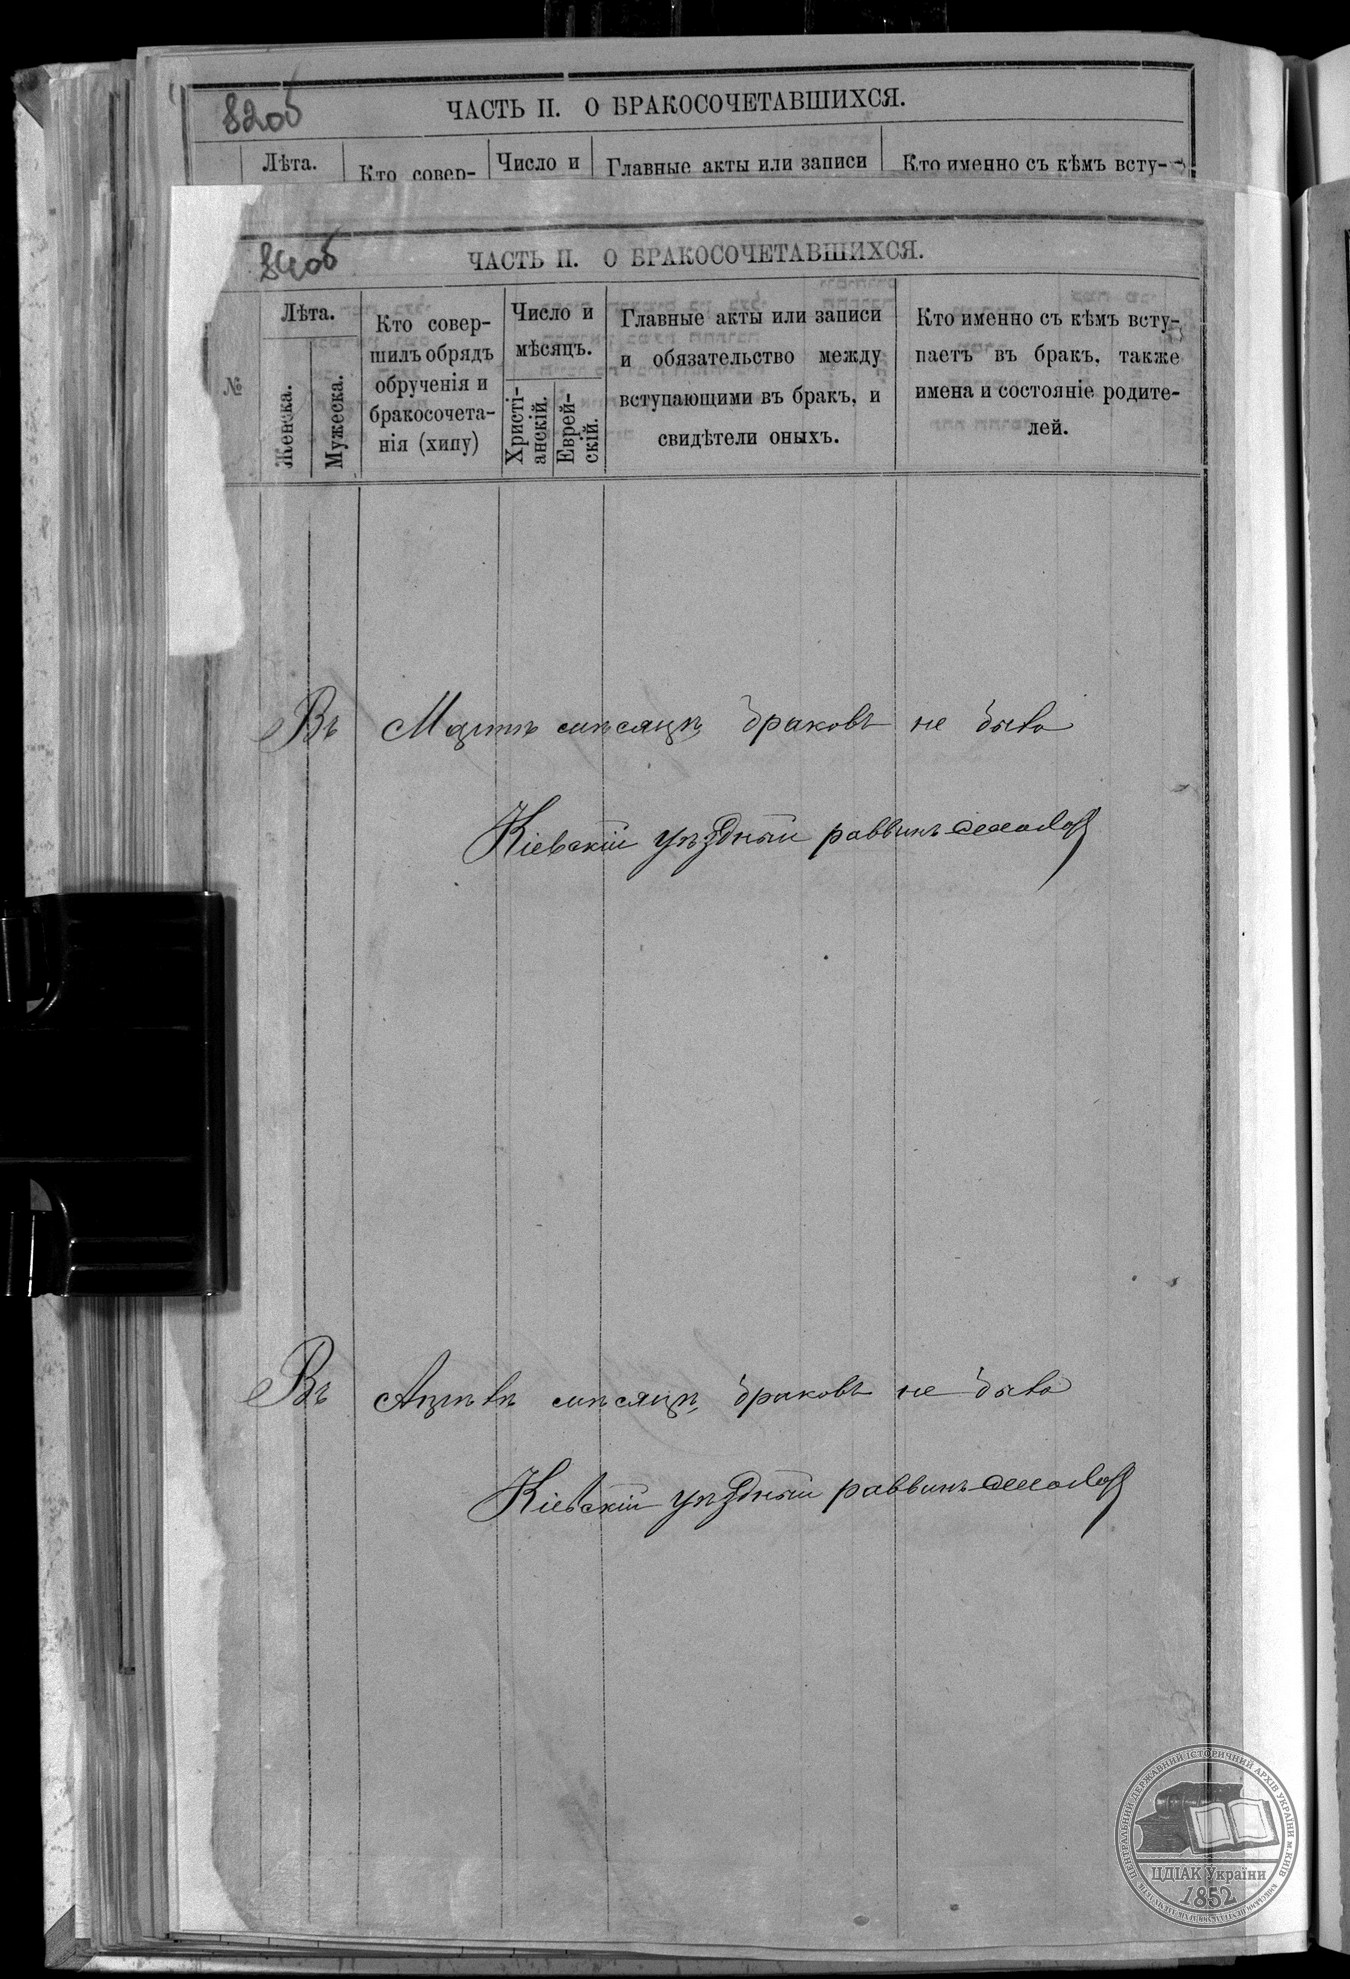 82об
ЧАСТЬ II. О БРАКОСОЧЕТАВШИХСЯ.
Лѣта.
Кто совер-
Число и
Главные акты или записи
Кто именно съ кѣмъ всту-
84об
ЧАСТЬ II. О БРАКОСОЧЕТАВШИХСЯ.
№
Лѣта.
Женска.
Мужеска.
Кто совер-
шилъ обрядъ
обрученія и
бракосочета-
нія (хипу)
Число и
мѣсяцъ.
Христі-
анскій.
Еврей-
скій.
Главные акты или записи
и обязательство между
вступающими въ бракъ, и
свидѣтели оныхъ.
Кто именно съ кѣмъ всту-
паетъ въ бракъ, также
имена и состояніе родите-
лей.
Въ Мартѣ мѣсяцѣ браковъ не было
Кіевскій уѣздный раввинъ
Въ Апрѣлѣ мѣсяцѣ браковъ не было
Кіевскій уѣздный раввинъ
ЦЕНТРАЛЬНИЙ ДЕРЖАВНИЙ ІСТОРИЧНИЙ АРХІВ УКРАЇНИ м. КИЇВ
ЦДІАК України
1852